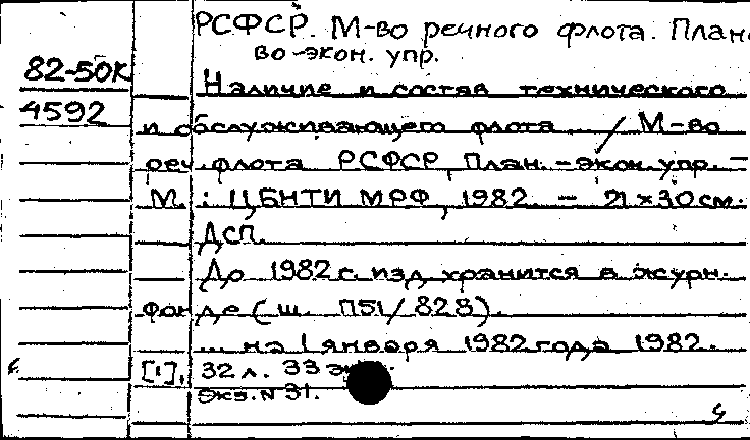 РСФСР. М-во речного флота. План
во-экон. упр.
82-50К
Наличие и состав технического
4592
и обслуживающего флота ... / М-во
реч. флота РСФСР, План.-экон. упр. -
М. : ЦБНТИ МРФ, 1982. - 21×30 см.
ДСП.
До 1982 г. изд. хранится в журн.
фонде (ш. П51/828).
... на 1 января 1982 года. 1982.
[1], 32 л. 33 экз.
Экз. № 31.